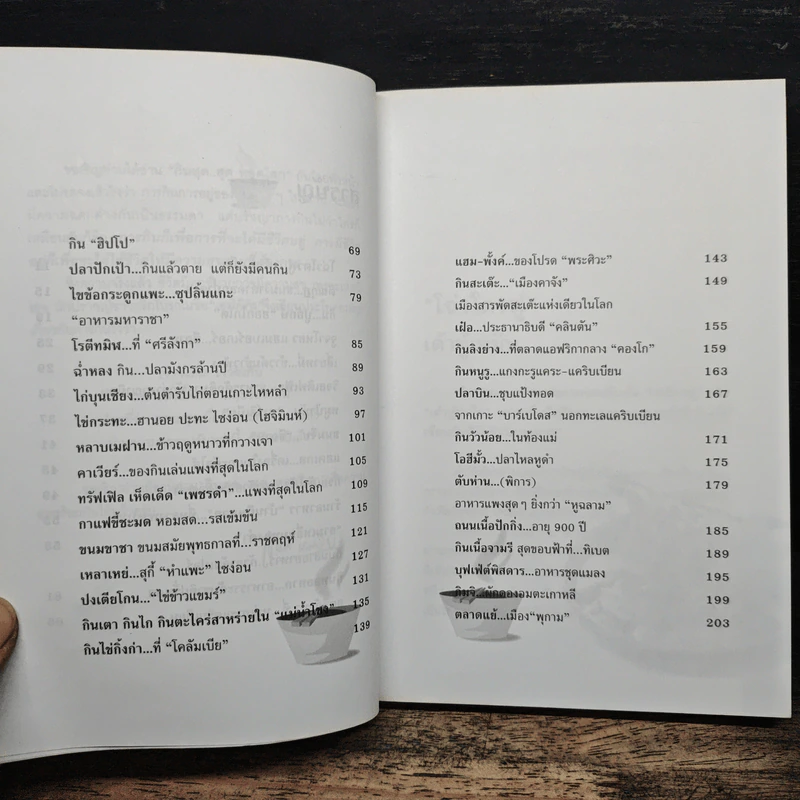 กิน “ฮิปโป” 69
ปลาปักเป้า...กินแล้วตาย แต่ก็ยังมีคนกิน 73
ไขข้อกระดูกแพะ...ซุปลิ้นแกะ 79
“อาหารมหาราชา”
โรตีทมิฬ...ที่ “ศรีลังกา” 85
ฉ่ำหลง กิน...ปลามังกรล้านปี 89
ไก่บุนเชียง...ต้นตำรับไก่ตอนเกาะไหหลำ 93
ไข่กระทะ...ฮานอย ปะทะ ไซง่อน (โฮจิมินห์) 97
หลาบเมฝาน...ข้าวฤดูหนาวที่กวางเจา 101
คาเวียร์...ของกินเล่นแพงที่สุดในโลก 105
ทรัฟเฟิล เห็ดเด็ด “เพชรดำ”...แพงที่สุดในโลก 109
กาแฟขี้ชะมด หอมสด...รสเข้มข้น 115
ขนมขาชา ขนมสมัยพุทธกาลที่...ราชคฤห์ 121
เหลาเหย่...สุกี้ “หำแพะ” ไซง่อน 127
ปงเตียโกน...“ไข่ข้าวแขมร์” 131
กินเตา กินไก กินตะไคร่สาหร่ายใน “แม่น้ำโขง” 135
กินไข่กิ้งก่า...ที่ “โคลัมเบีย” 139
แฮม-พั้งค์...ของโปรด “พระศิวะ” 143
กินสะเต๊ะ...“เมืองคาจัง” 149
เมืองสารพัดสะเต๊ะแห่งเดียวในโลก
เฝอ...ประธานาธิบดี “คลินตัน” 155
กินลิงย่าง...ที่ตลาดแอฟริกากลาง “คองโก” 159
กินหนูรู...แกงกะรูแคระ-แคริบเบียน 163
ปลาบิน...ชุบแป้งทอด 167
จากเกาะ “บาร์เบโดส” นอกทะเลแคริบเบียน
กินวัวน้อย...ในท้องแม่ 171
โอฮีมั้ว...ปลาไหลหูดำ 175
ตับห่าน...(พิการ) 179
อาหารแพงสุดๆ ยิ่งกว่า “หูฉลาม”
ถนนเนื้อปักกิ่ง...อายุ 900 ปี 185
กินเนื้อจามรี สุดขอบฟ้าที่...ทิเบต 189
บุฟเฟ่ต์พิสดาร...อาหารชุดแมลง 195
กิมจิ...ผักดองอมตะเกาหลี 199
ตลาดแย้...เมือง“พุกาม” 203